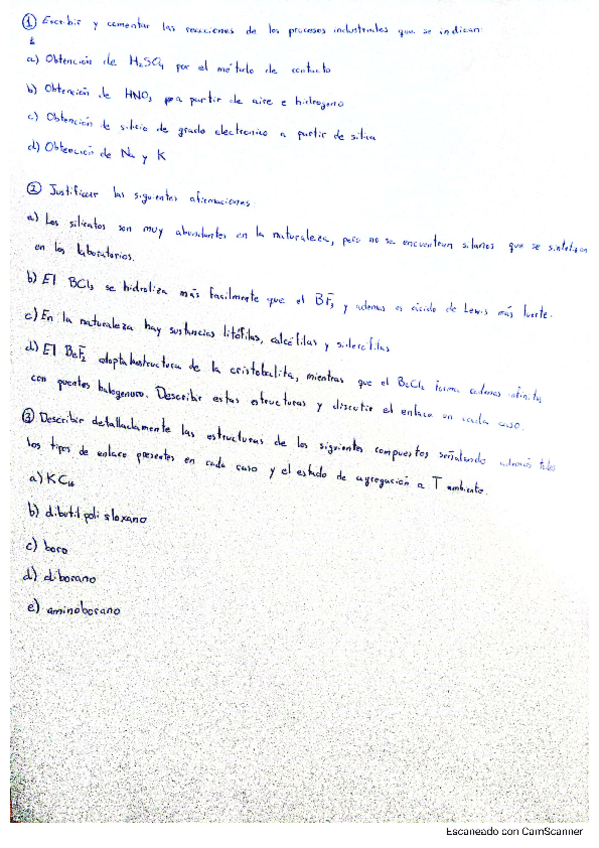 ① Escribir y comentar las reacciones de los procesos industriales que se indican:
a) Obtención de H₂SO₄ por el método de contacto
b) Obtención de HNO₃ a partir de aire e hidrógeno
c) Obtención de silicio de grado electronico a partir de sílice
d) Obtención de Na y K
② Justificar las siguientes afirmaciones
a) Los silicatos son muy abundantes en la naturaleza, pero no se encuentran silanos que se sintetizan
en los laboratorios.
b) El BCl₃ se hidroliza más facilmente que el BF₃ y ademas es ácido de Lewis más fuerte.
c) En la naturaleza hay sustancias litófilas, calcófilas y siderófilas
d) El BeF₂ adopta la estructura de la cristobalita, mientras que el BeCl₂ forma cadenas infinitas
con puentes halogenuro. Describir estas estructuras y discutir el enlace en cada caso.
③ Describir detalladamente las estructuras de los siguientes compuestos señalando además todos
los tipos de enlace presentes en cada caso y el estado de agregación a T ambiente.
a) KC₁₆
b) dibutil polisiloxano
c) boro
d) diborano
e) aminoborano
Escaneado con CamScanner